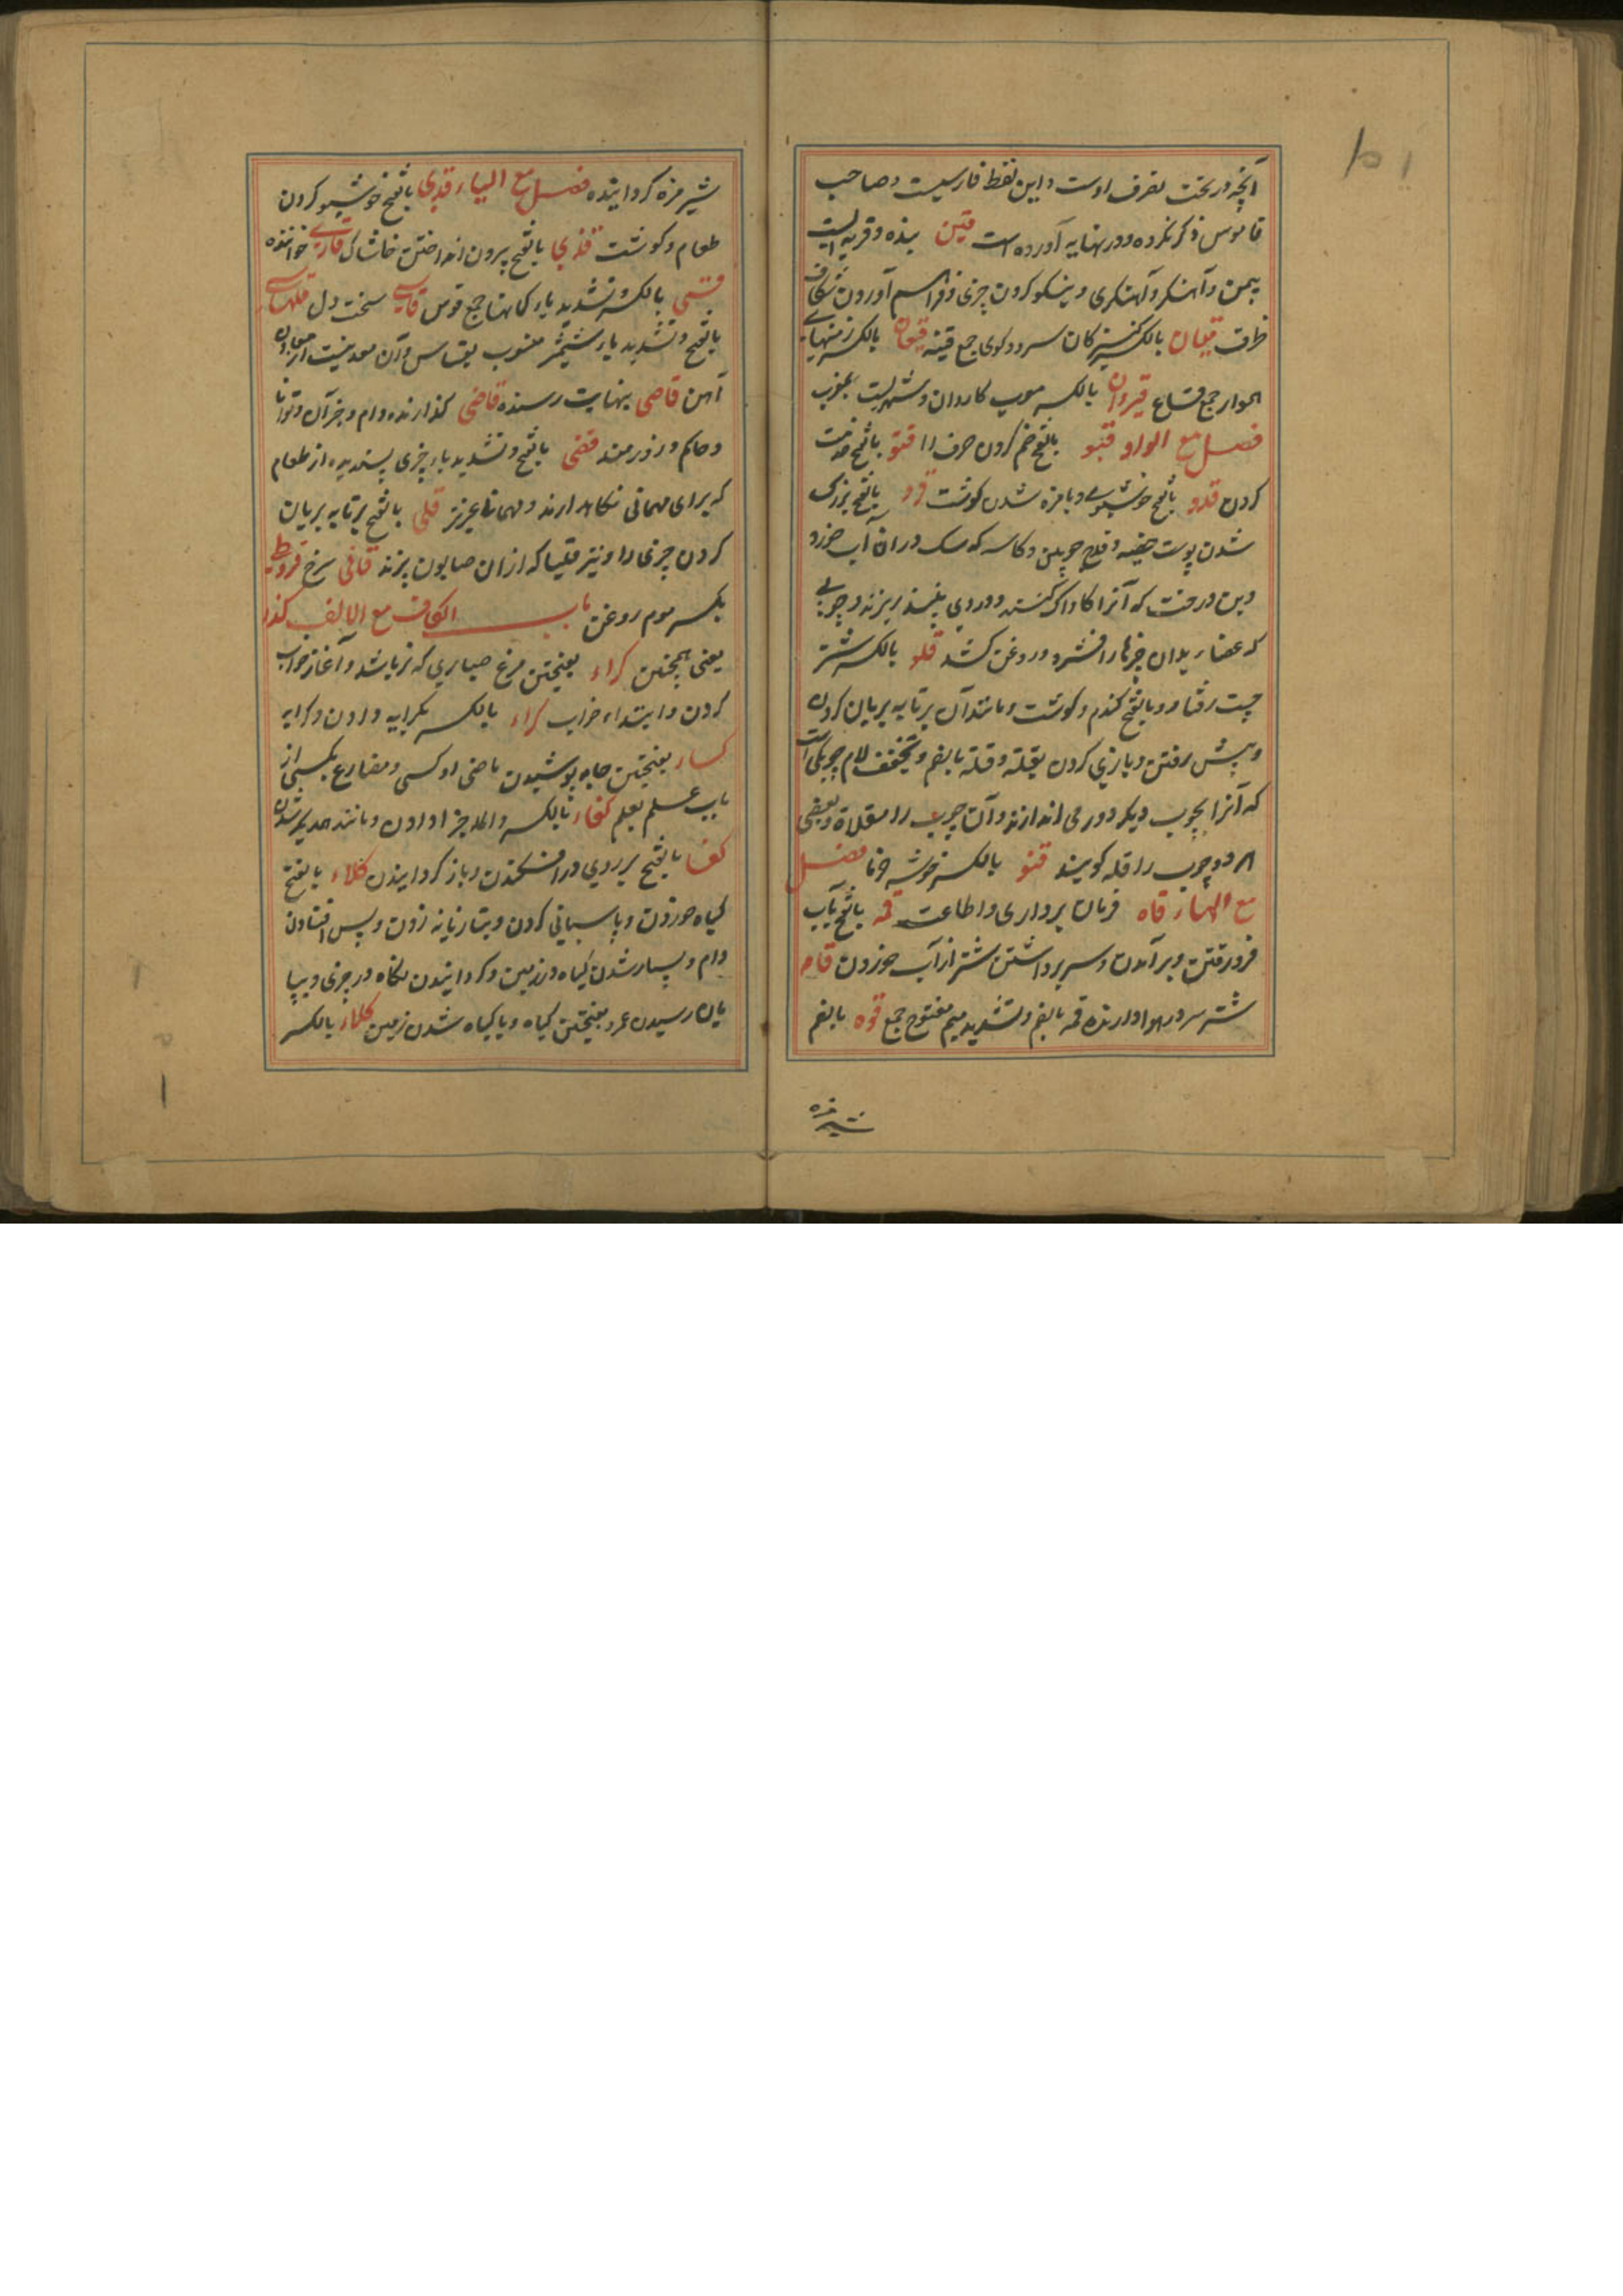 آنچه در تخت تصرف اوست و این لفظ فارسیست و صاحب
قاموس ذکر نکرده و در نهایه آورده است قین بنده و قریه ایست
بیمن و آهنگر و آهنگری و نیکو کردن چیزی و فراهم آوردن شکاف
ظرف قیان بالکسر کنیزکان سرود گوی جمع قینه قیعان بالکسر زمینهای
هموار جمع قاع قیروان بالکسر معرب کاروان و شهریست بمغرب
فصل مع الواو قبو بالفتح ضم کردن حرف را قتو بالفتح خدمت
کردن قدو بالفتح خوشبوی و بامزه شدن گوشت قرو بالفتح بزرگ
شدن پوست خصیه و قدح چوبین و کاسه که سگ در آن آب خورد
وبن درخت که آنرا کاواک کنند و دروی نبیذ ریزند و چوبی
که عصار بدان چیزها را فشرد و روغن کشد قلو بالکسر شتر
چست رفتار و بالفتح گندم و گوشت و مانند آن بر تابه بریان کردن
و پیش رفتن و بازی کردن بقلة و قلة بالضم و تخفیف لام چوبکی است
که آنرا بچوب دیگر دور می اندازند و آن چوب را مقلاة و بعضی
هر دو چوب را قله گویند قنو بالکسر خوشه خرما فصل
مع الهاء قاه فرمان برداری و اطاعت قمه بالفتح بآب
فرو رفتن و بر آمدن و سر برداشتن شتر از آب خوردن قامه
شتر سر در هوا دارنده قمه بالضم و تشدید میم مفتوح جمع قوه بالضم
شیر مزه
شیر مزه گردانیده فصل مع الیاء قدی بالفتح خوشبو کردن
طعام و گوشت قذی بالفتح بیرون انداختن خاشاک قاری خواننده
قسی بالکسر و تشدید یاء کمانها جمع قوس قاسی سخت دل قلهاسی
بالفتح و تشدید یاء شمشیر منسوب بقساس و آن معدنیست از معادن
آهن قاصی بنهایت رسنده قاضی گذارنده وام و جز آن و توانا
و حاکم و زورمند قفی بالفتح و تشدید یاء چیزی پسندیده از طعام
که برای مهمانی نگاهدارند و مهمان عزیز قلی بالفتح بر تابه بریان
کردن چیزی را و نیز قلیا که ازان صابون پزند قانی سرخ قروطی
بکسر موم روغن باب الکاف مع الالف کذا
یعنی همچنین کراء بفتحتین مرغ حباری که نر باشد و آغاز خواب
کردن و ابتداء خواب کراء بالکسر بکرایه دادن و کرایه
کساء بفتحتین جامه پوشیدن ماضی او کسی و مضارع یکسی از
باب علم یعلم کفاء بالکسر و المد جزا دادن و مانند همدیگر شدن
کفا بالفتح بر روی در افکندن و باز گردانیدن کلاء بالفتح
گیاه خوردن و پاسبانی کردن و بتازیانه زدن و پس افتادن
وام و بسیار شدن گیاه در زمین و گردانیدن نگاه در چیزی و بپا
یان رسیدن عمر و بفتحتین گیاه و با گیاه شدن زمین کلاء بالکسر